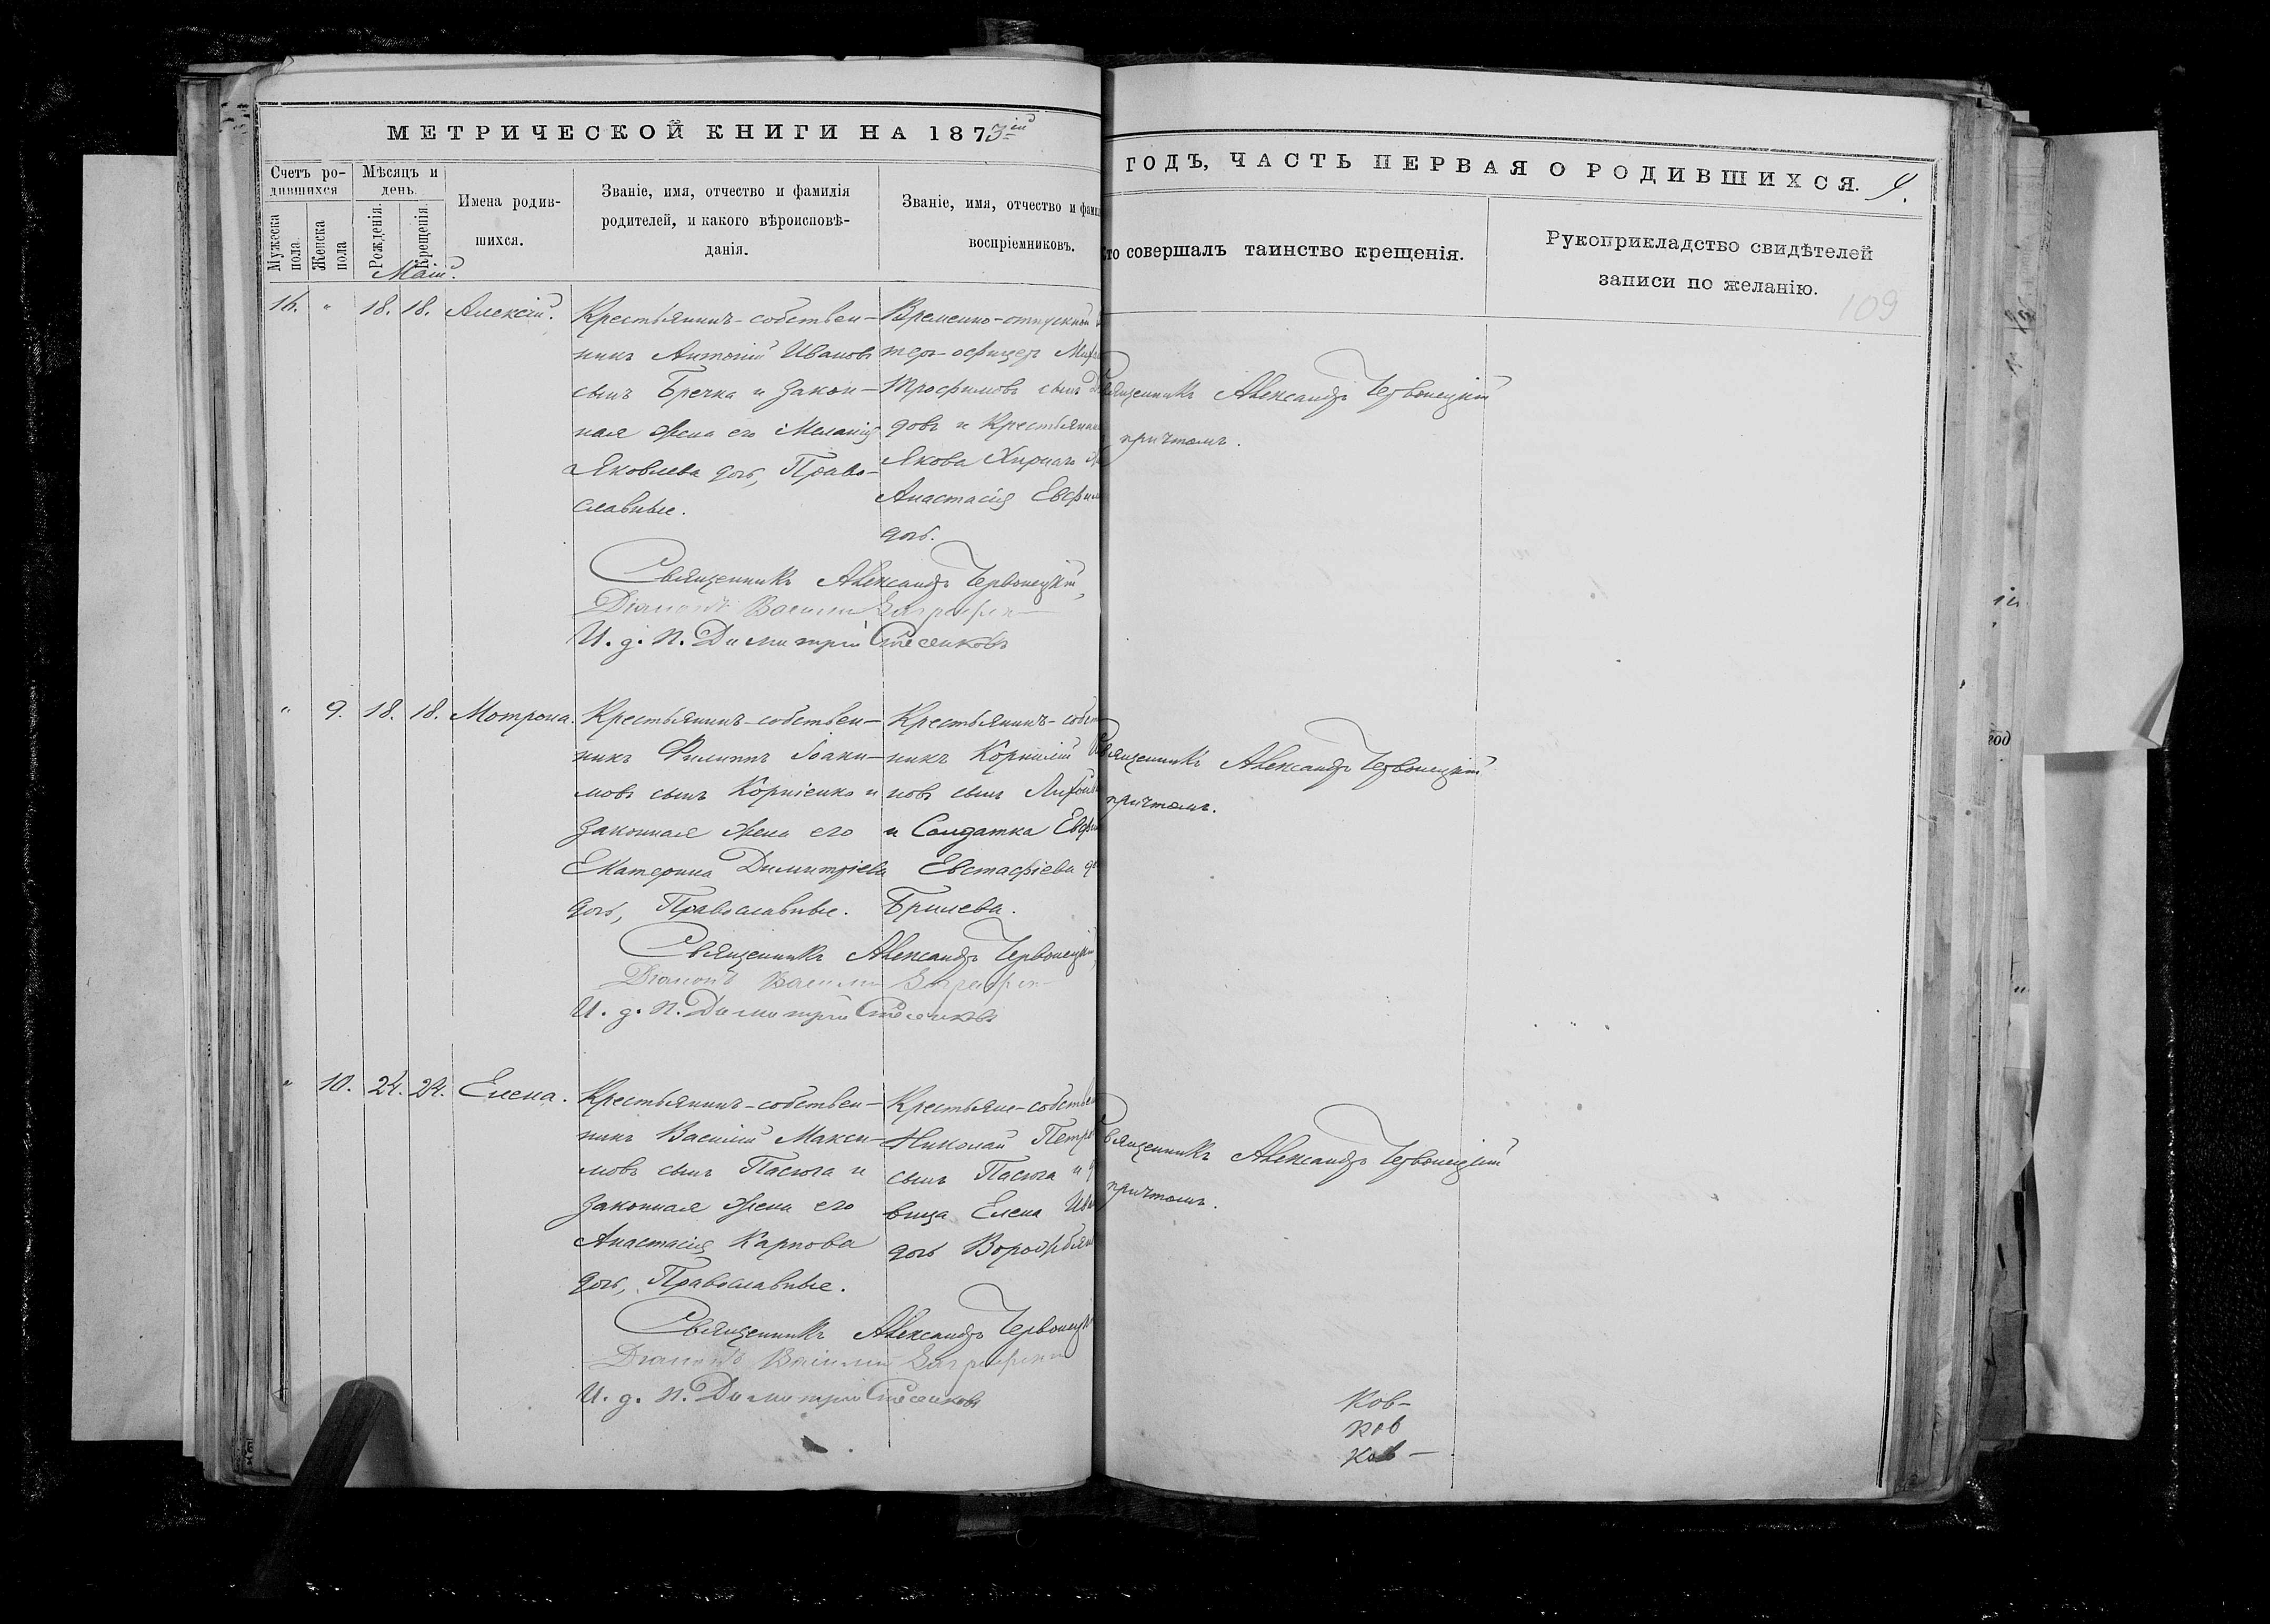 МЕТРИЧЕСКОЙ КНИГИ НА 1873ій
ГОДЪ, ЧАСТЬ ПЕРВАЯ О РОДИВШИХСЯ. 9.
Счетъ ро-
дившихся
Мужеска пола.
Женска пола
Мѣсяцъ и
день.
Рожденія.
Крещенія.
Имена родив-
шихся.
Званіе, имя, отчество и фамилія
родителей, и какого вѣроисповѣ-
данія.
Званіе, имя, отчество и фами
воспріемниковъ.
то совершалъ таинство крещенія.
Рукоприкладство свидѣтелей
записи по желанію.
109
Маій.
16. " 18. 18. Алексій.
Крестьянинъ-собствен-
никъ Антоній Ивановъ
сынъ Бречка и закон-
ная жена его Меланія
Яковлева дочь, Право-
славные.
Временно-отпускной
теръ-офицеръ
Трофимовъ сынъ
довъ и Крестьянин
Якова
Анастасія Евфи
дочь.
Священникъ Александръ Червонецкій
причтомъ.
Священникъ Александръ Червонецкій,
Діаконъ Василій
И. д. п. Димитрій Стесенковъ
" 9. 18. 18. Мотрона.
Крестьянинъ-собствен-
никъ Филиппъ Іоаки-
мовъ сынъ Корніенко и
законная жена его
Екатерина Димитріева
дочь, Православные.
Крестьянинъ-собст
никъ Корнилій
новъ сынъ
и Солдатка Евфи
Евстафіева до
Брилева.
Священникъ Александръ Червонецкій
причтомъ.
Священникъ Александръ Червонецкій,
Діаконъ Василій
И. д. п. Димитрій Стесенковъ
" 10. 24. 24. Елена.
Крестьянинъ-собствен-
никъ Василій Макси-
мовъ сынъ Пасюга и
законная жена его
Анастасія Карпова
дочь, Православные.
Крестьяне-собствен
Николай Петро
сынъ Пасюга и д
вица Елена Ива
дочь
Священникъ Александръ Червонецкій
причтомъ.
Священникъ Александръ Червонецкі
Діаконъ Василій
И. д. п. Димитрій Стесенковъ
ков-
ков
ков-